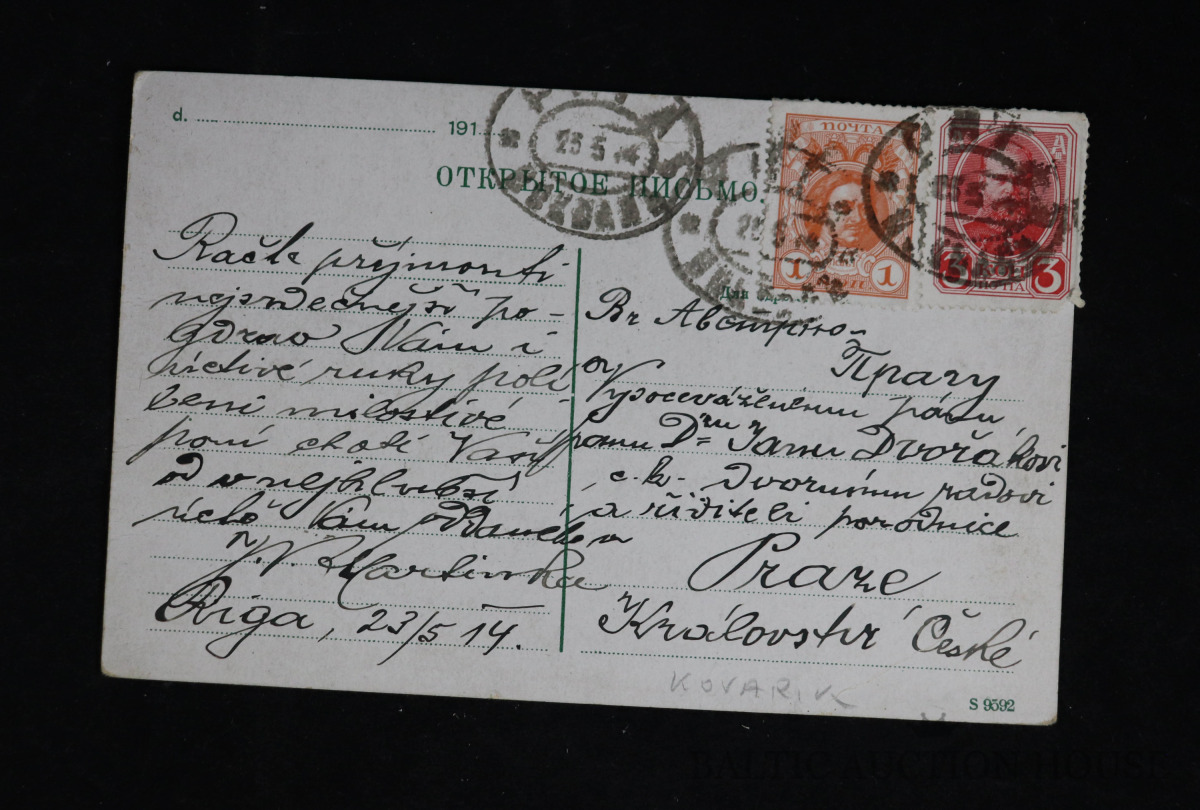 d. 191
ОТКРЫТОЕ ПИСЬМО.
ПОЧТА
1 1
3 КОП 3
Račte přijmouti
nejsrdečnější po-
zdrav Vám i
uctivé ruky polí
bení milostivé
paní choti Vaší
od v nejhlubší
úctě Vám oddaného
Martinka
Riga, 23/5 14.
Въ Австрію
Прагу
Vysoceváženému pánu,
panu Dru Janu Dvořákovi
c. k. dvornímu radovi
a řediteli porodnice
v
Praze
Království České
KOVARIK
S 9592
BALTIC AUCTION HOUSE